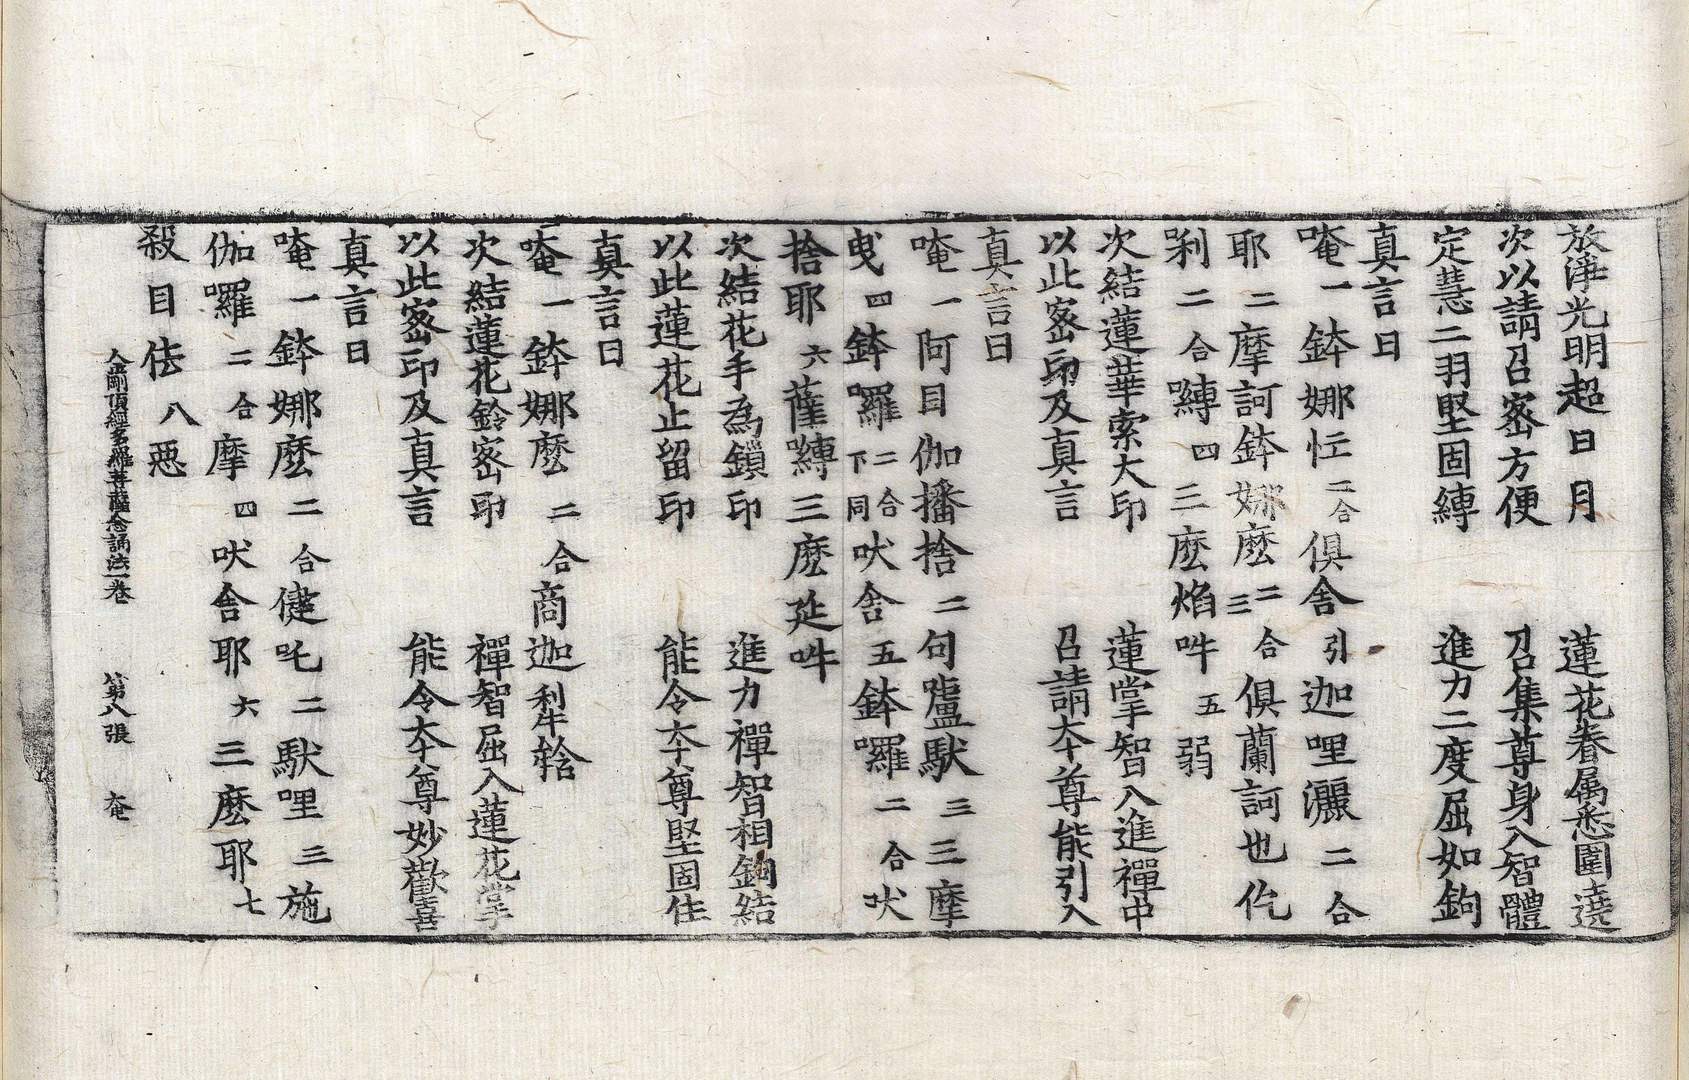 放淨光明超日月　蓮花眷属悉圍遶
次以請召宻方便　召集尊身入智體
定慧二羽堅固縛　進力二度屈如鉤
真言曰
唵一鉢娜忹二合俱舍引迦哩灑二合
耶二摩訶鉢娜麽二合三俱蘭訶也仡
剎二合嚩四三麽焰吽五弱
次結蓮華索大印　蓮掌智入進禪中
以此宻印及真言　召請夲尊能引入
真言曰
唵一阿目伽播捨二句嚧馱三三摩
曳四鉢囉二合下同吠舍五鉢囉二合吠
捨耶六薩嚩三麽延吽
次結花手為鎖印　進力禪智相鉤結
以此蓮花止留印　能令夲尊堅固住
真言曰
唵一鉢娜麽二合商迦利牛𨋢
次結蓮花鈴宻印　禪智屈入蓮花掌
以此宻印及真言　能令夲尊妙歡喜
真言曰
唵一鉢娜麽二合儓吒二馱哩三施
伽囉二合摩四吠舍耶六三麽耶七
殺目佉八惡
金剛頂經多羅菩薩念誦法一卷　第八張　夲